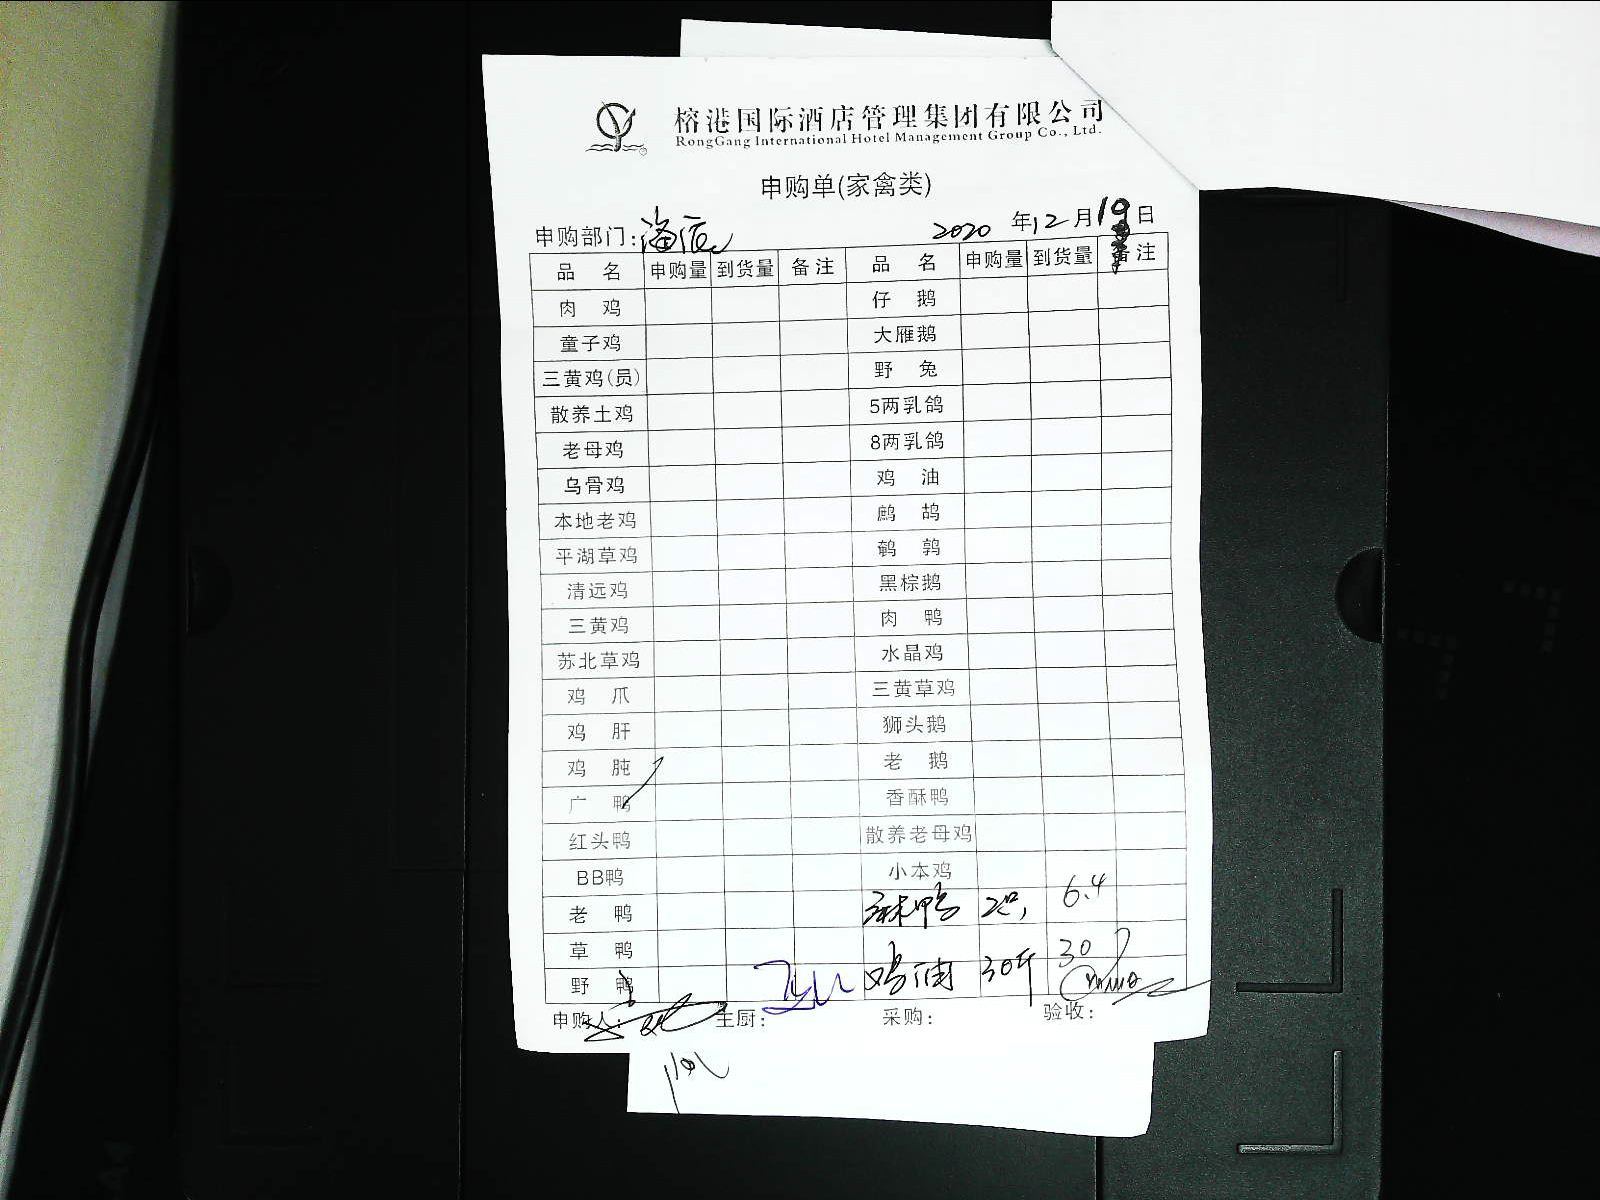 榕港国际酒店管理集团有限公司
RongGang International Hotel Management Group Co., Ltd.
申购单(家禽类)
申购部门: 2020 年 12 月 19 日
品 名 申购量 到货量 备注 品 名 申购量 到货量 备注
肉 鸡 仔 鹅
童子鸡 大雁鹅
三黄鸡(员) 野 兔
散养土鸡 5两乳鸽
老母鸡 8两乳鸽
乌骨鸡 鸡 油
本地老鸡 鹧 鸪
平湖草鸡 鹌 鹑
清远鸡 黑棕鹅
三黄鸡 肉 鸭
苏北草鸡 水晶鸡
鸡 爪 三黄草鸡
鸡 肝 狮头鹅
鸡 肫 老 鹅
广 鸭 香酥鸭
红头鸭 散养老母鸡
BB鸭 小本鸡
老 鸭 鸭 2只, 6.4
草 鸭 30
野 鸭 鸡油 30斤
申购人: 主厨: 采购: 验收: